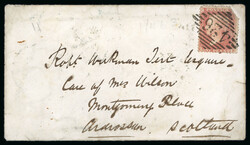 Robt Workman Tert Esquire
Care of Mrs Wilson
Montgomery Place
Ardrossan Scotland